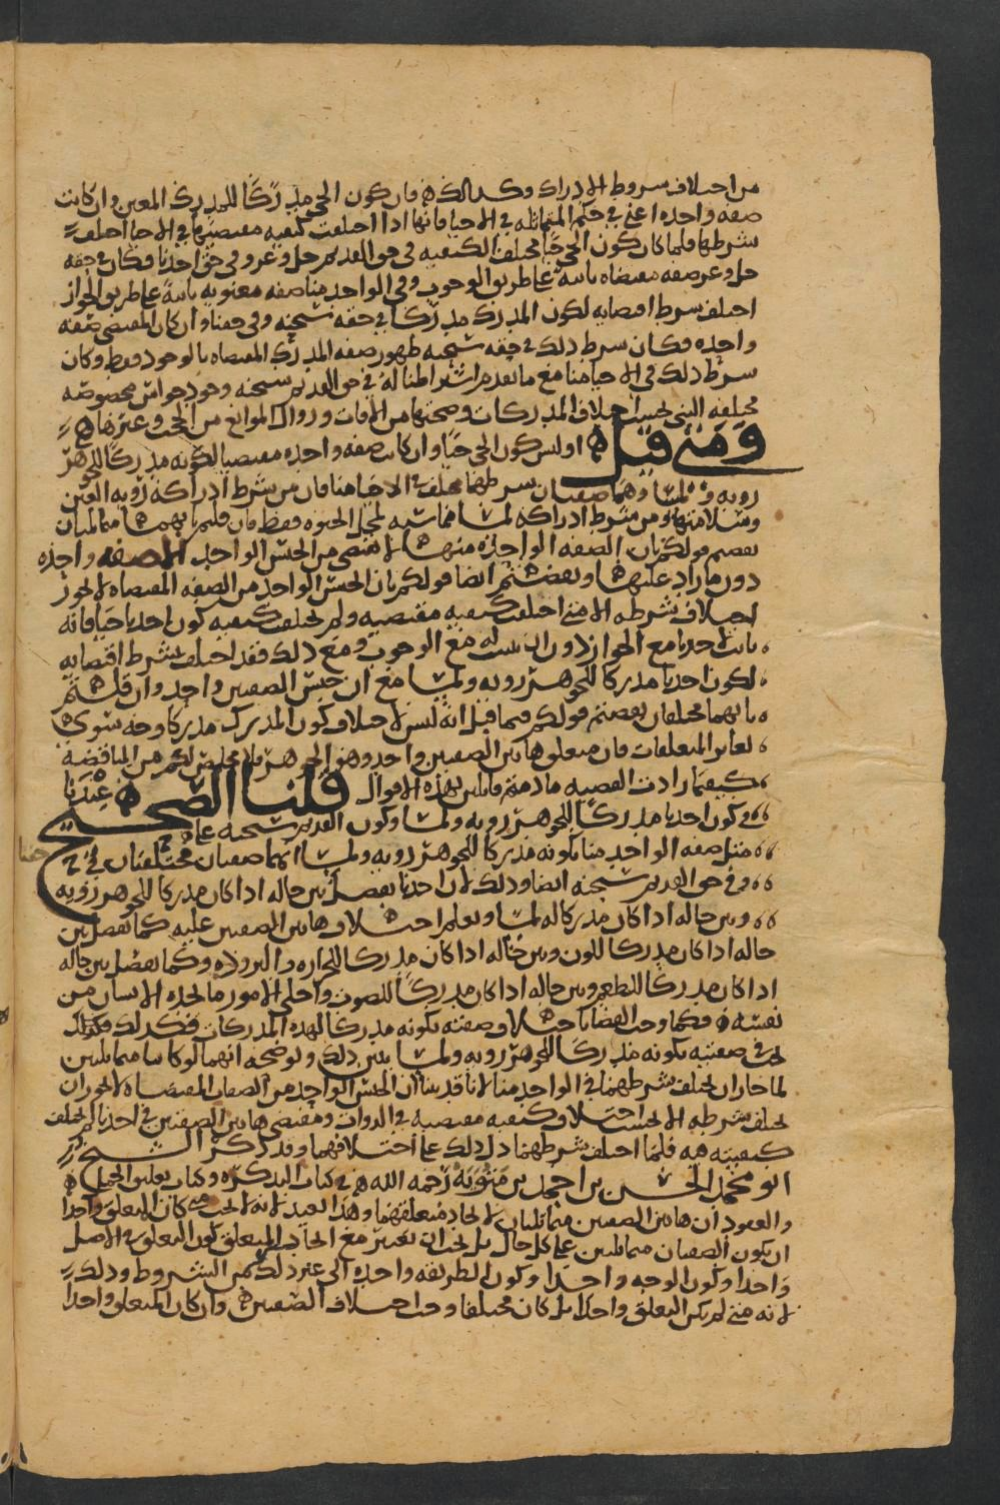 من اختلاف شروط الادراك وكذلك فان كون الحي مدركًا للمدرك المعين وان كانت
صفه واحده اعني في حكم المتماثله في الاحيا فانها اذا اختلفت كيفيه مقتضيها في الاحيا اختلف
شرطها فلما كان كون الحي حيًا مختلف الكيفيه في حق القديم جل وعز وفي حق احدنا فكان في حقه
جل وعز صفه مقتضاه ثابته على طريق الوجوب وفي الواحد منا صفه معنويه ثابتة على طريق الجواز
اختلف شرط اقتضايه لكون المدرك مدركًا في حقه سبحنه وفي حقنا وان كان المقتضى صفه
واحده فكان شرط ذلك في حقه سبحنه ظهور صفه المدرك المقتضاه بالوجود فقط وكان
شرط ذلك في الاحيا منا مع ما تقدم اشتراطنا له في حق القديم سبحنه وجود حواس مخصوصه
مختلفه البنى بحسب اختلاف المدركات وصحتها من الافات وزوال الموانع من الحجب وغيرها
ومتى قيل اوليس كون الحي حيًا وان كانت صفه واحده مقتضيا لكونه مدركًا للجوهر
رويه ولمسًا وهما صفتان شرطهما مختلف في الاحيا منا فان من شرط ادراكه رويه العين
وسلامتها ومن شرط ادراكه لمسًا مماسته لمحل الحيوه فقط فان قلتم بانهما متماثلتان
نقضتم قولكم بان الصفه الواحده منها لا تقتضي من الجنس الواحد الا صفه واحده
دون ما زاد عليها ونقضتم ايضا قولكم بان الجنس الواحد من الصفه المقتضاه لا يجوز
اختلاف شرطه الا متى اختلفت كيفيه مقتضيه ولم تختلف كيفيه كون احدنا حيًا فانه
ثابت لاحدنا مع الجواز دون ان يثبت له مع الوجوب ومع ذلك فقد اختلف شرط اقتضايه
لكون احدنا مدركًا للجوهر رويه ولمسًا مع ان جنس الصفتين واحد وان قلتم
بانهما مختلفتان نقضتم قولكم فيما قبل انه ليس لاختلاف كون المدرك مدركًا وجه سوى
تغاير المتعلقات فان متعلق هاتين الصفتين واحد وهو الجوهر فلا مخلص لكم من المناقضه
كيفما زادت القضيه ما دمتم قايلين بهذه الاقوال قلنا الصحيح عندنا
في كون احدنا مدركًا للجوهر رويه ولمسًا وكون القديم سبحنه على
مثل صفه الواحد منا بكونه مدركًا للجوهر رويه ولمسًا انهما صفتان مختلفتان في حقنا
وفي حق القديم سبحنه ايضا وذلك لان احدنا يفصل بين حاله اذا كان مدركًا للجوهر رويه
وبين حاله اذا كان مدركًا له لمسًا ويعلم اختلاف هاتين الصفتين عليه كما يفصل بين
حاله اذا كان مدركًا للون وبين حاله اذا كان مدركًا للحراره والبروده وكما يفصل بين حاله
اذا كان مدركًا للطعم وبين حاله اذا كان مدركًا للصوت واجلى الامور ما يجده الانسان من
نفسه فكما وجب القضا باختلاف صفته بكونه مدركًا لهذه المدركات فكذلك
في صفتيه بكونه مدركًا للجوهر رويه ولمسًا يبين ذلك ويوضحه انهما لو كانتا متماثلتين
لما جاز ان يختلف شرطهما في الواحد منا لانا قد بينا ان الجنس الواحد من الصفات المقتضاه لا يجوز ان
يختلف شرطه الا بحسب اختلاف كيفيه مقتضيه في الذوات ومقتضي هاتين الصفتين في احدنا لم تختلف
كيفيته فلما اختلف شرطهما دل ذلك على اختلافهما وقد ذكر الشيخ
ابو محمد الحسن بن احمد بن متويه رحمه الله في كتاب التذكره وكتاب تعليق المحيط
والعقود ان هاتين الصفتين متماثلتان لاتحاد متعلقهما وهذا بعيد لانه لا يجب متى كان المتعلق واحدا
ان يكون الصفتان متماثلتين على كل حال بل يجب ان يعتبر مع اتحاد المتعلق كون التعلق في الاصل
واحدا وكون الوجه واحدا وكون الطريقه واحده الى غير ذلك من الشروط وذلك
لانه متى لم يكن التعلق واحدا بل كان مختلفا وجب اختلاف الصفتين وان كان المتعلق واحدا